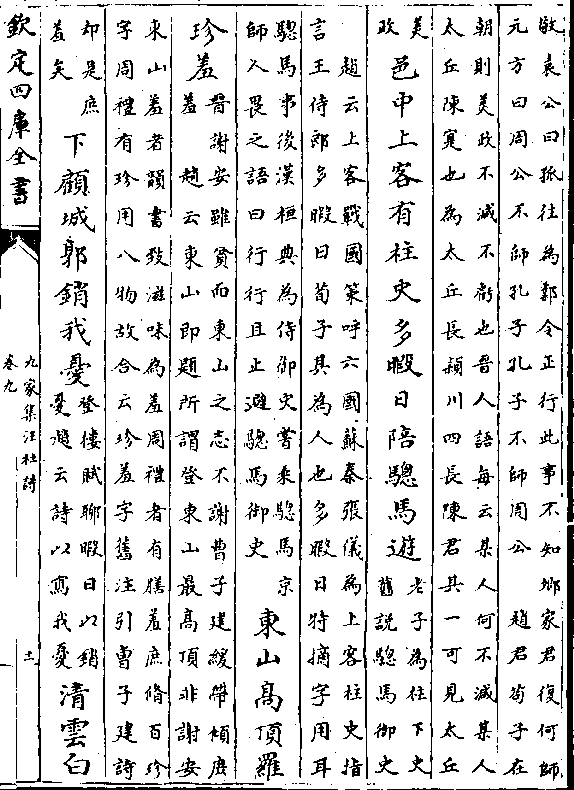 敏袁公曰孤往為鄴令正行此事不知鄉家君復何師
元方曰周公不師孔子孔子不師周公 趙君荀子在
朝則美政不減不虧也晉人語每云某人何不減某人
太丘陳寔也為太丘長潁川四長陳君其一可見太丘
美
政
邑中上客有柱史多暇日陪驄馬遊
老子為柱下史
舊說驄馬御史
趙云上客戰國策呼六國蘇秦張儀為上客柱史指
言王侍郎多暇日荀子其為人也多暇日特摘字用耳
驄馬事後漢桓典為侍御史嘗乘驄馬京
師人畏之語曰行行且止避驄馬御史
東山高頂羅
珍羞
晉謝安雖貧而東山之志不謝曹子建緩帶傾庶
羞 趙云東山即題所謂登東山最高頂非謝安
東山羞者韻書致滋味為羞周禮者有膳羞庶脩百珍
字周禮有珍用八物故合云珍羞字舊注引曹子建詩
却是庶
羞矣
下顧城郭銷我憂
登樓賦聊暇日以銷
憂趙云詩以寫我憂
清雲白
欽定四庫全書
九家集注杜詩
卷九
十一